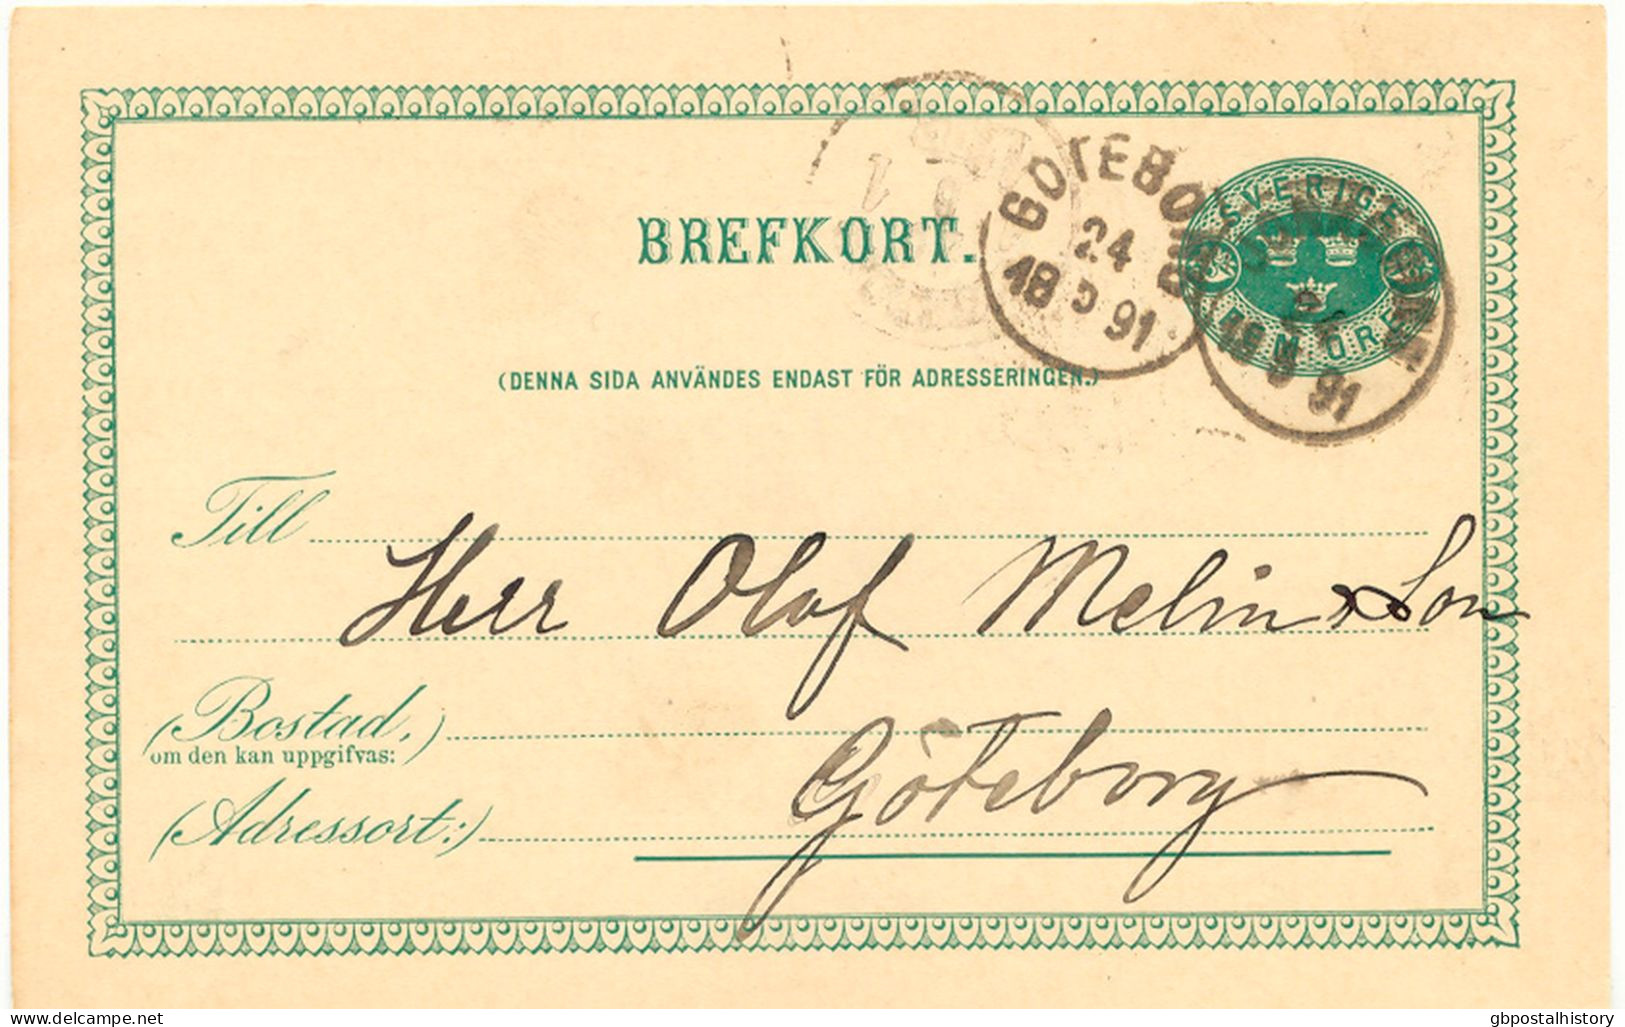 BREFKORT.
SVERIGE
FEM ÖRE
GÖTEBORG
24
18 9 91
18 9 91
(DENNA SIDA ANVÄNDES ENDAST FÖR ADRESSERINGEN.)
Till Herr Olof Melin & Son
(Bostad,)
om den kan uppgifvas:
Göteborg
(Adressort:)
www.delcampe.net
gbpostalhistory